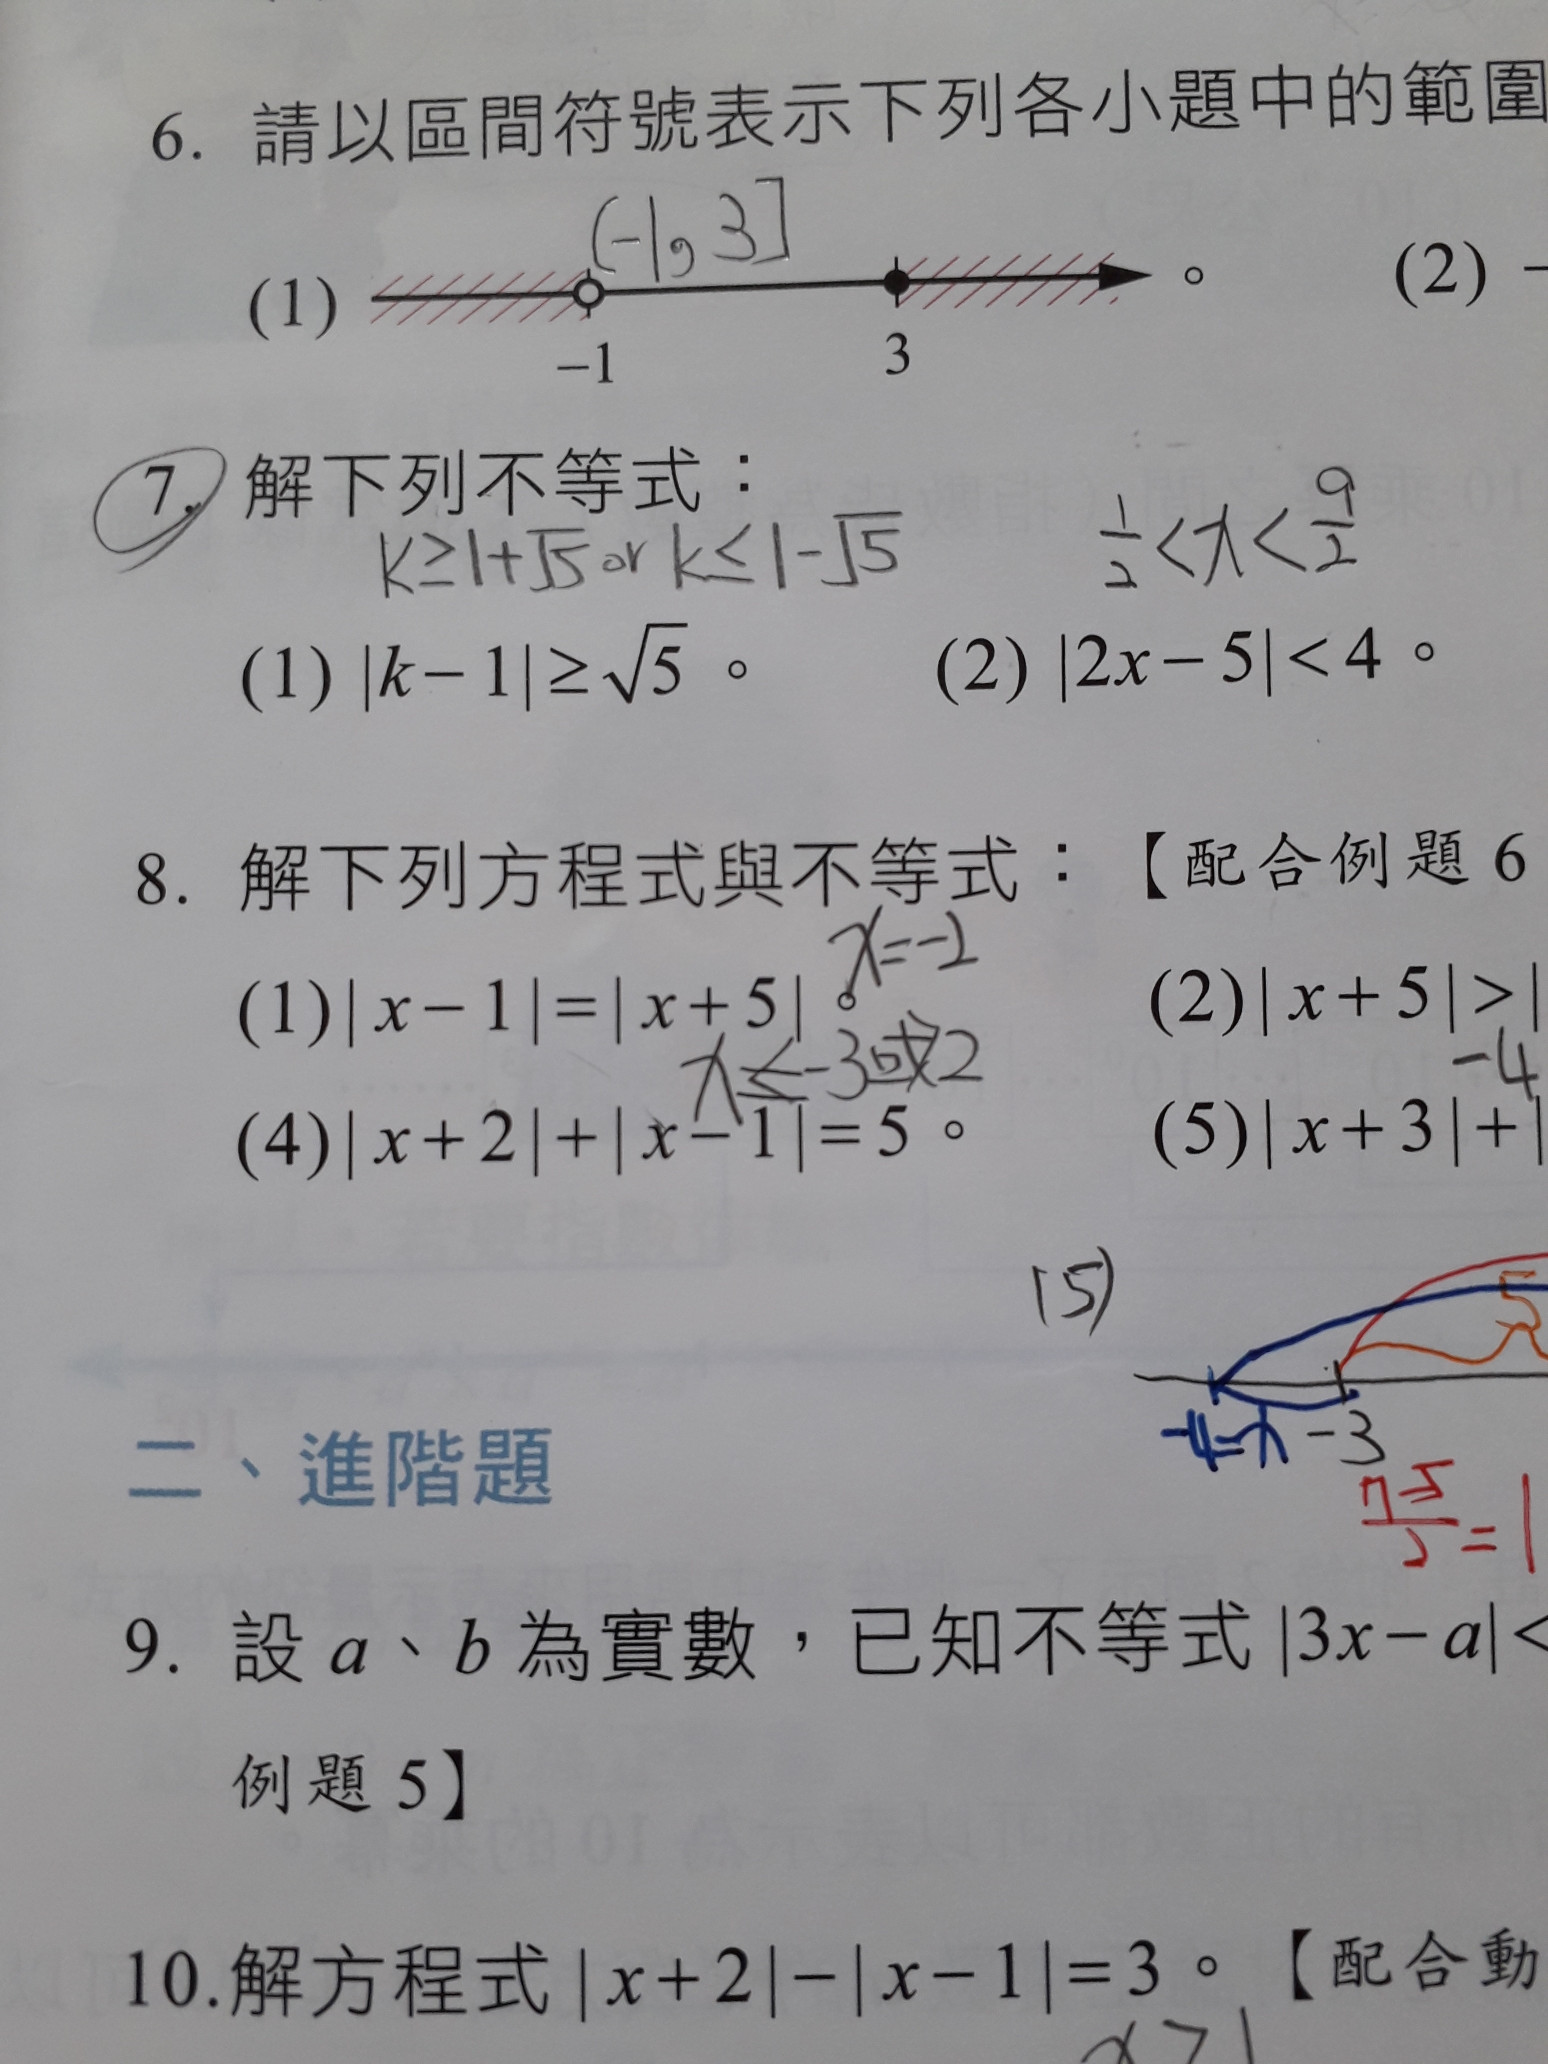 6. 請以區間符號表示下列各小題中的範圍
(-1, 3]
(1) 。 (2) -
-1 3
7. 解下列不等式：
k≥1+√5 or k≤1-√5 1/2<x<9/2
(1) |k-1|≥√5 。 (2) |2x-5|<4 。
8. 解下列方程式與不等式：【配合例題 6
x=-2
(1)|x-1|=|x+5| 。 (2)|x+5|>|
x=-3或2 -4
(4)|x+2|+|x-1|=5 。 (5)|x+3|+|
(5)
5
-4= -3
7-5/2=1
二、進階題
9. 設 a、b 為實數，已知不等式 |3x-a|<
例題 5】
10.解方程式 |x+2|-|x-1|=3 。【配合動
x≥1